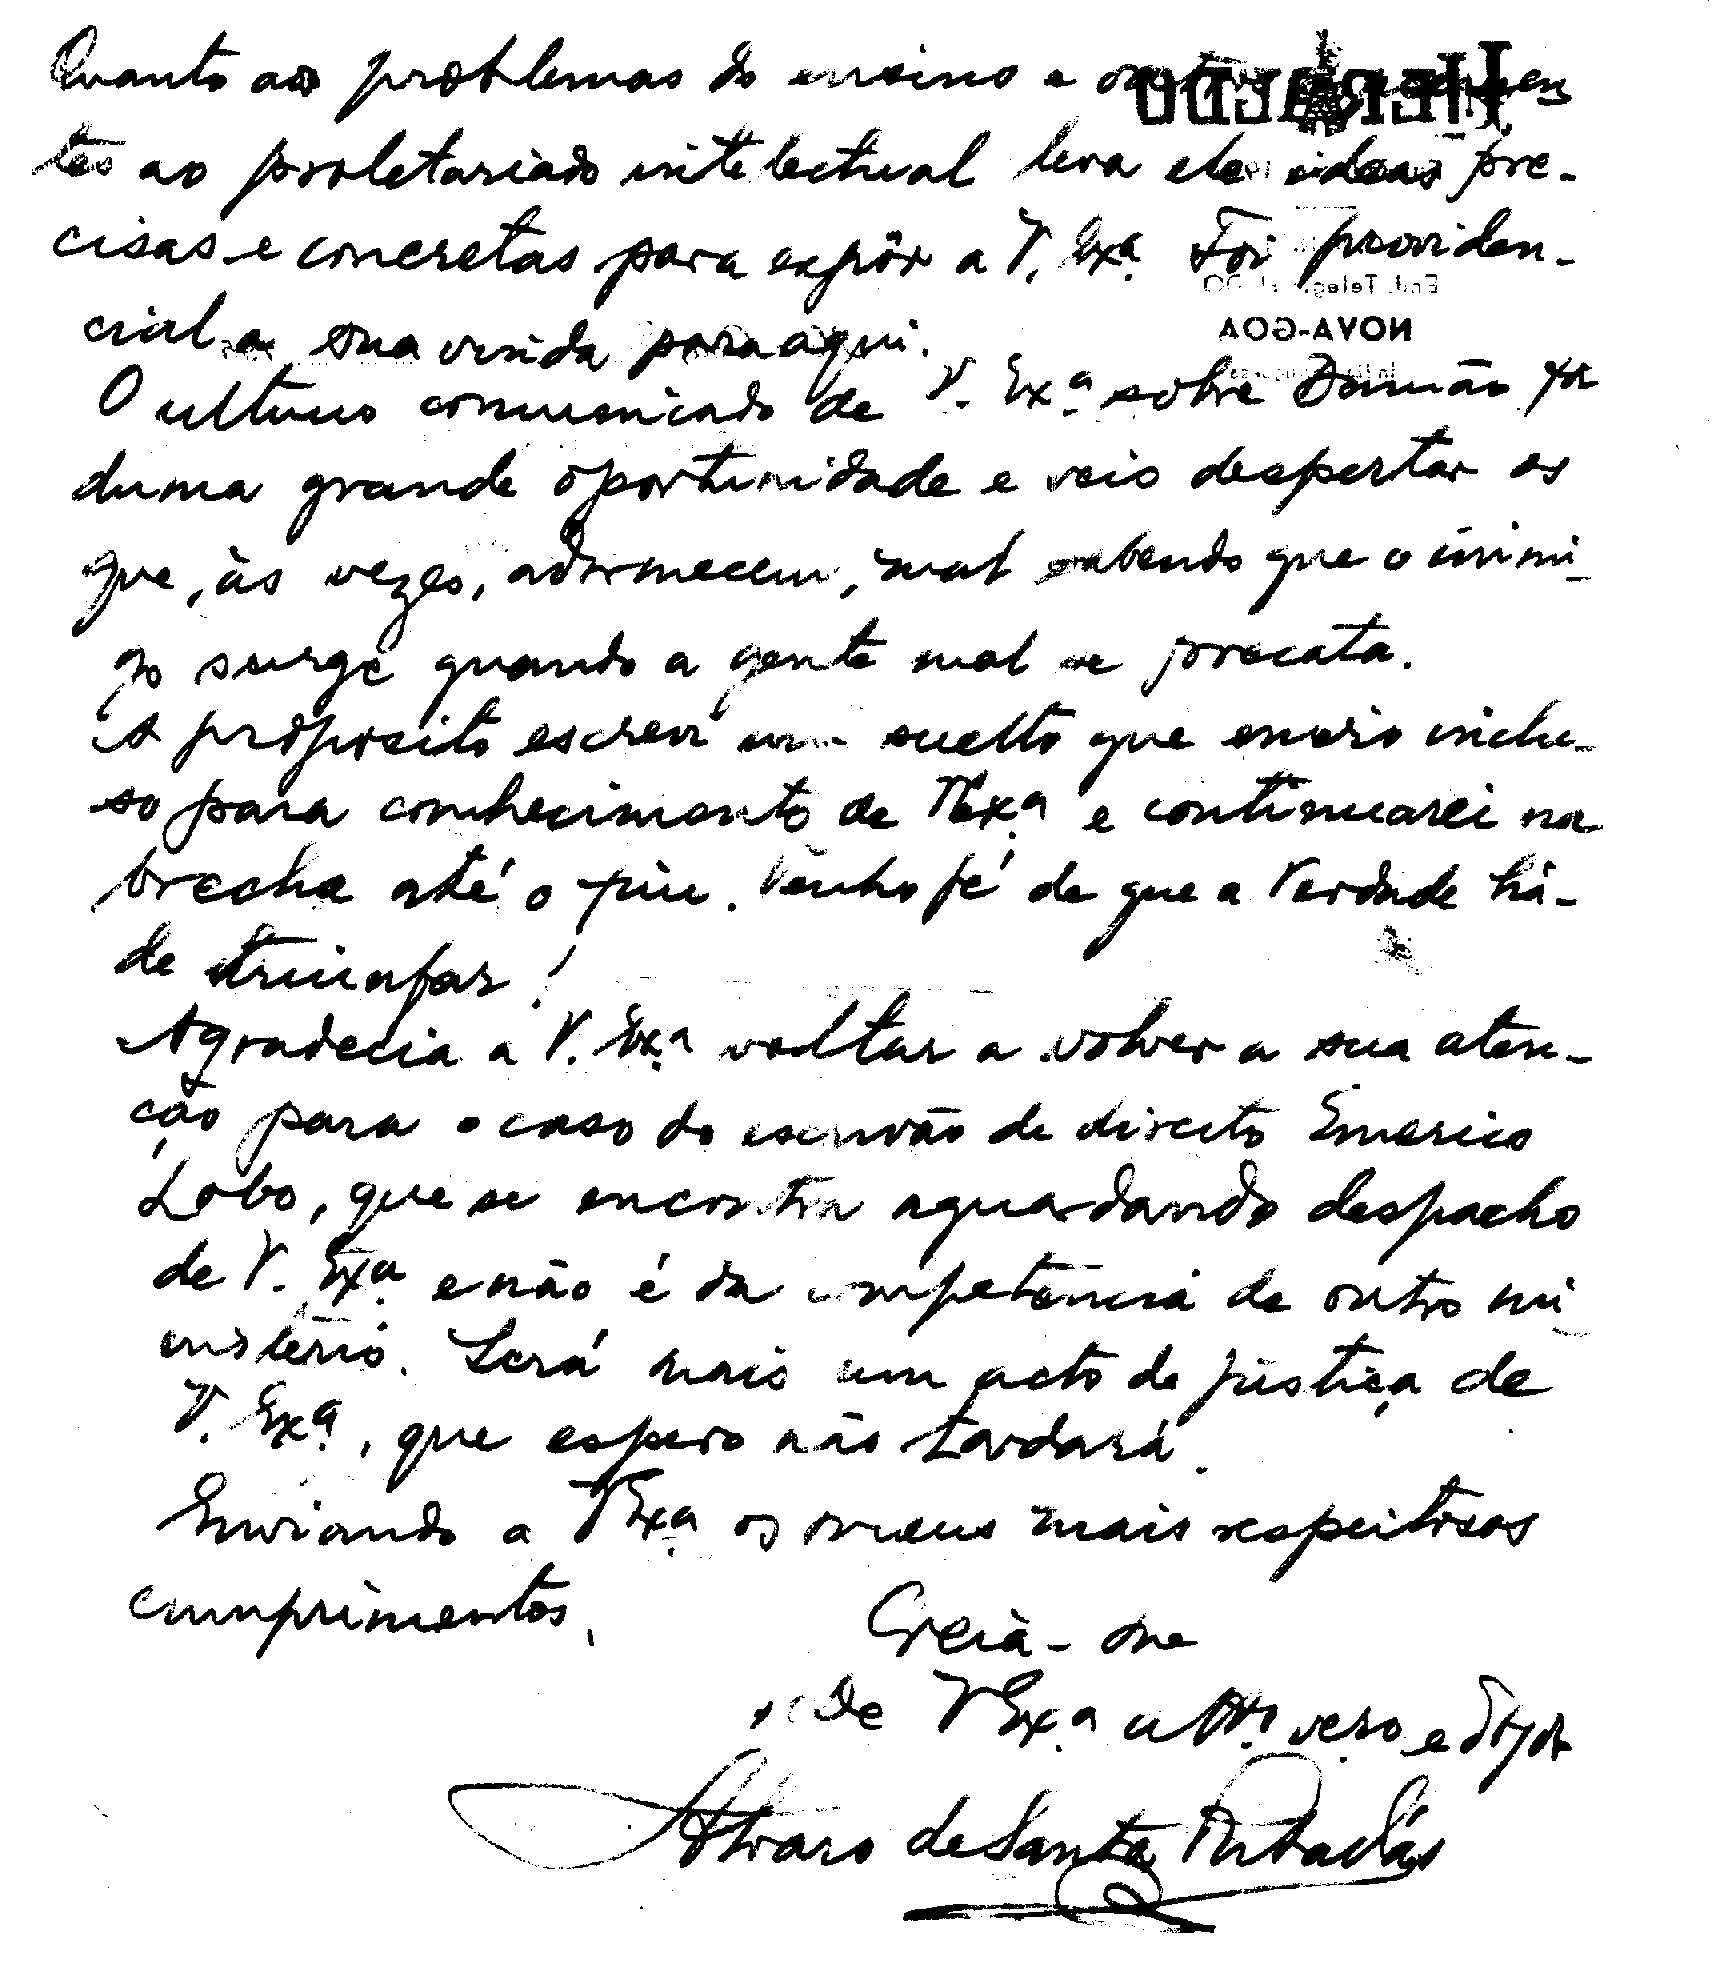 Quanto aos problemas do ensino e
tes ao proletariado intelectual leva ele ideas pre-
cisas e concretas para expôr a V. Exª. Foi providen-
cial a sua vinda para aqui.
O ultimo comunicado de V. Exª. sobre Damão foi
duma grande oportunidade e veio despertar os
que, às vezes, adormecem, mal sabendo que o inimi-
go surge quando a gente mal se precata.
A proposito escrevi um suelto que envio inclu-
so para conhecimento de V Exª. e continuarei na
brecha até o fim. Tenho fé de que a Verdade há-
de triunfar!
Agradecia a V. Exª. voltar a volver a sua aten-
ção para o caso do escrivão de direito Emerico
Lobo, que se encontra aguardando despacho
de V. Exª. e não é da competência de outro mi-
nistério. Será mais um acto de justiça de
V. Exª., que espero não tardará.
Enviando a V Exª. os meus mais respeitosos
cumprimentos,
Creia-me
de V Exª. attº. vesº. e
Alvaro de Santa Rita Vás
Heraldo
End. Teleg.
NOVA-GOA